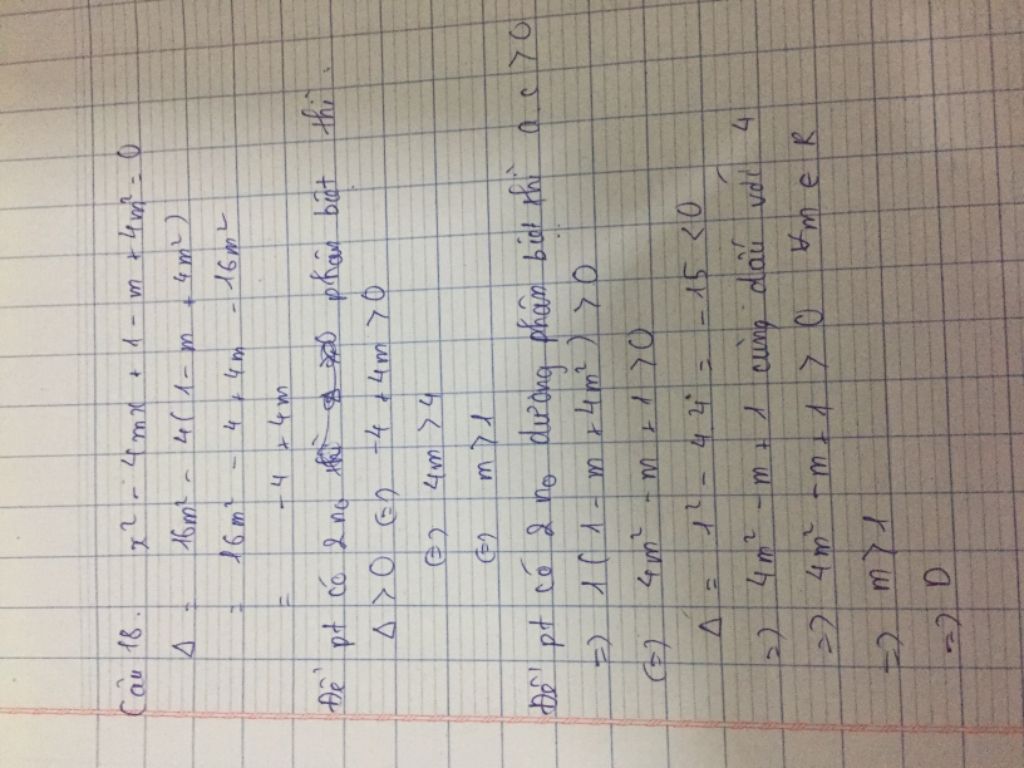 Câu 18. x² - 4mx + 1 - m + 4m² = 0
Δ = 16m² - 4(1 - m + 4m²)
= 16m² - 4 + 4m - 16m²
= -4 + 4m
Để pt có 2 no phân biệt thì
Δ > 0 (=) -4 + 4m > 0
(=) 4m > 4
(=) m > 1
Để pt có 2 no dương phân biệt thì a.c > 0
=) 1(1 - m + 4m²) > 0
(=) 4m² - m + 1 > 0
Δ = 1² - 4.4 = -15 < 0
=) 4m² - m + 1 cùng dấu với 4
=) 4m² - m + 1 > 0 ∀m ∈ R
=) m > 1
=) D